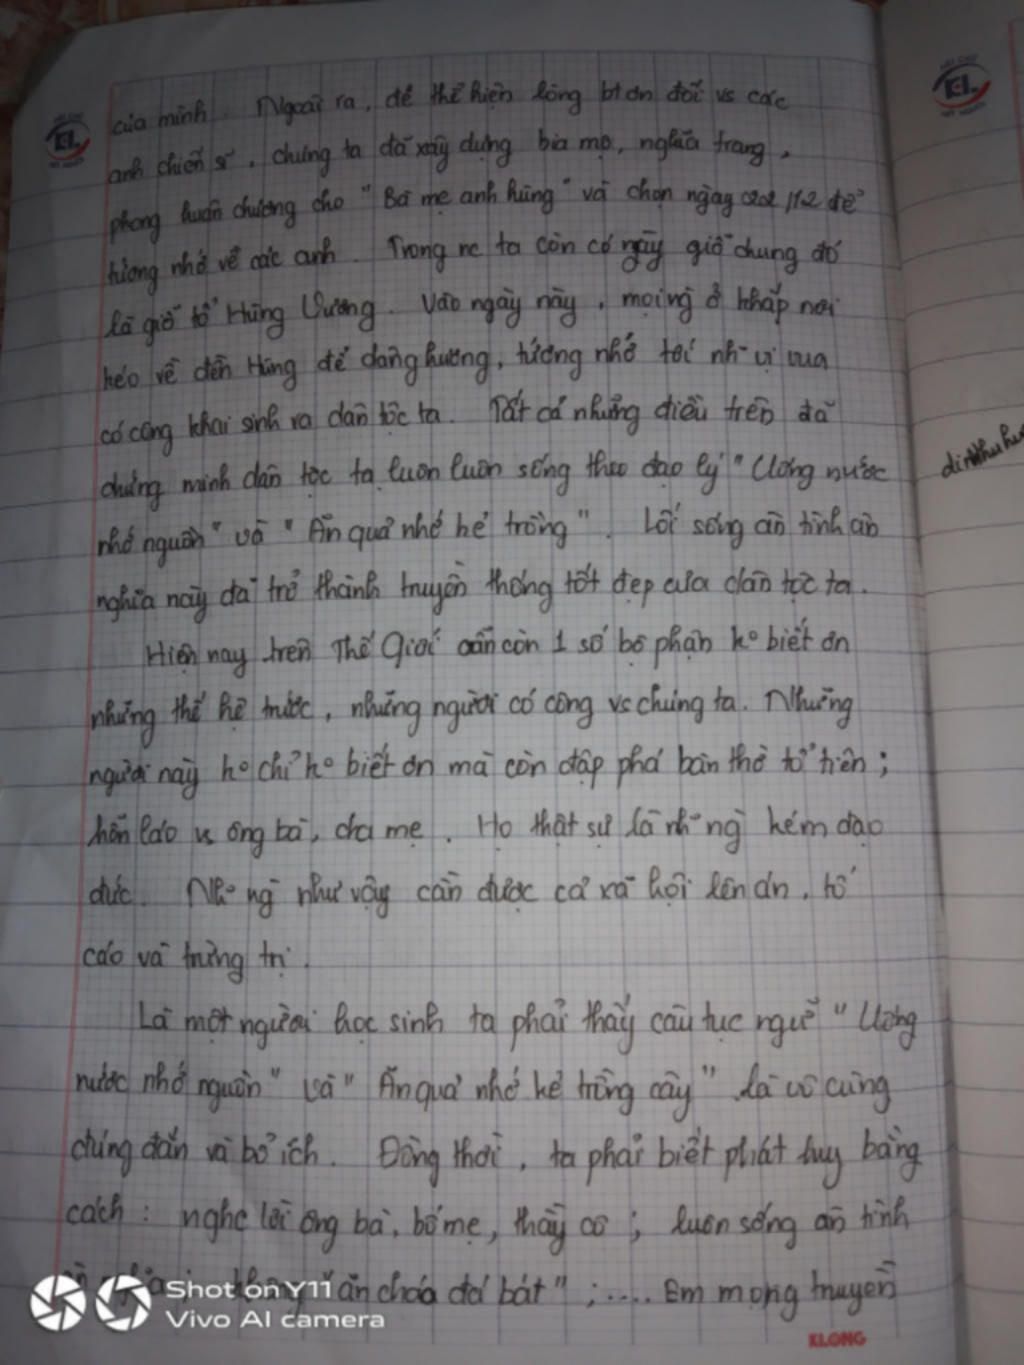 của mình. Ngoài ra, để thể hiện lòng bt ơn đối vs các
anh chiến sĩ, chúng ta đã xây dựng bia mộ, nghĩa trang,
phong huân chương cho "Bà mẹ anh hùng" và chọn ngày 22/12 để
tưởng nhớ về các anh. Trong nc ta còn có ngày giỗ chung đó
là giỗ tổ Hùng Vương. Vào ngày này, mọi ng ở khắp nơi
kéo về đền Hùng để dâng hương, tưởng nhớ tới nh~ vị vua
có công khai sinh ra dân tộc ta. Tất cả những điều trên đã
chứng minh dân tộc ta luôn luôn sống theo đạo lý "Uống nước
nhớ nguồn" và "Ăn quả nhớ kẻ trồng". Lối sống ân tình ân
nghĩa này đã trở thành truyền thống tốt đẹp của dân tộc ta.
Hiện nay trên Thế Giới vẫn còn 1 số bộ phận ko biết ơn
những thế hệ trước, những người có công vs chúng ta. Những
người này ko chỉ ko biết ơn mà còn đập phá bàn thờ tổ tiên;
hỗn láo vs ông bà, cha mẹ. Họ thật sự là nh~ ng kém đạo
đức. Nh~ ng như vậy cần được cả xã hội lên án, tố
cáo và trừng trị.
Là một người học sinh ta phải thấy câu tục ngữ "Uống
nước nhớ nguồn" và "Ăn quả nhớ kẻ trồng cây" là vô cùng
đúng đắn và bổ ích. Đồng thời, ta phải biết phát huy bằng
cách: nghe lời ông bà, bố mẹ, thầy cô; luôn sống ân tình
ăn cháo đá bát";.... Em mong truyền
Shot on Y11
Vivo AI camera
KLONG